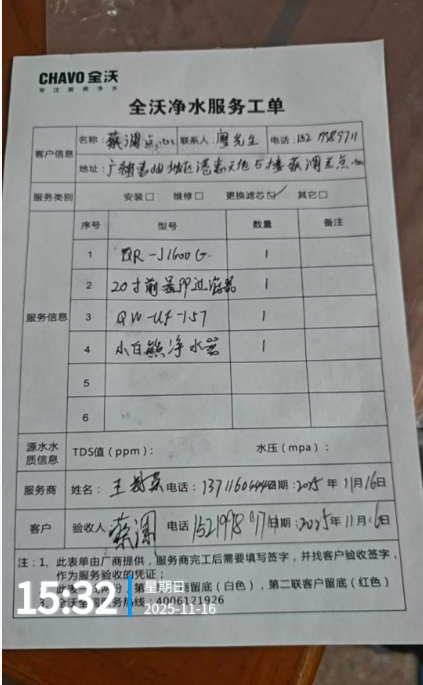 CHAVO 全沃
专注商修净水
全沃净水服务工单
客户信息 名称： 联系人： 先生 电话：
地址：
服务类别 安装□ 维修□ 更换滤芯☑ 其它□
服务信息 序号 型号 数量 备注
1 QR-J1600G 1
2 20寸前置PP过滤器 1
3 QW-UF-157 1
4 小白熊净水器 1
5
6
源水水质信息 TDS值（ppm）： 水压（mpa）：
服务商 姓名：王 电话： 日期：2025年11月16日
客户 验收人： 电话 日期：2025年11月16日
注：1、此表单由厂商提供，服务商完工后需要填写签字，并找客户验收签字，
作为服务验收的凭证；
留底（白色），第二联客户留底（红色）
热线：4006121926
15:32 星期日
2025-11-16